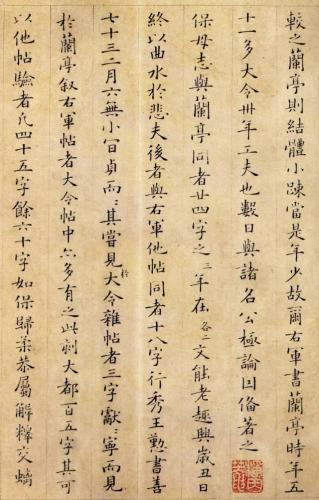 較之蘭亭則結體小疎當是年少故爾右軍書蘭亭時年五
十一多大令卅年工夫也數日與諸名公極論因俻著之
保母志與蘭亭同者廿四字之三年在各二文能老趣興歲丑日
終以曲水於悲夫後者與右軍他帖同者十八字行秀王勲書善
七十三二月六無小貞而二其嘗見於大令雜帖者三字獻二寧而見
於蘭亭叙右軍帖者大令帖中亦多有之此刻大都一百五字其可
以他帖驗者凡四十五字餘六十字如保歸柔恭屬解釋交螭